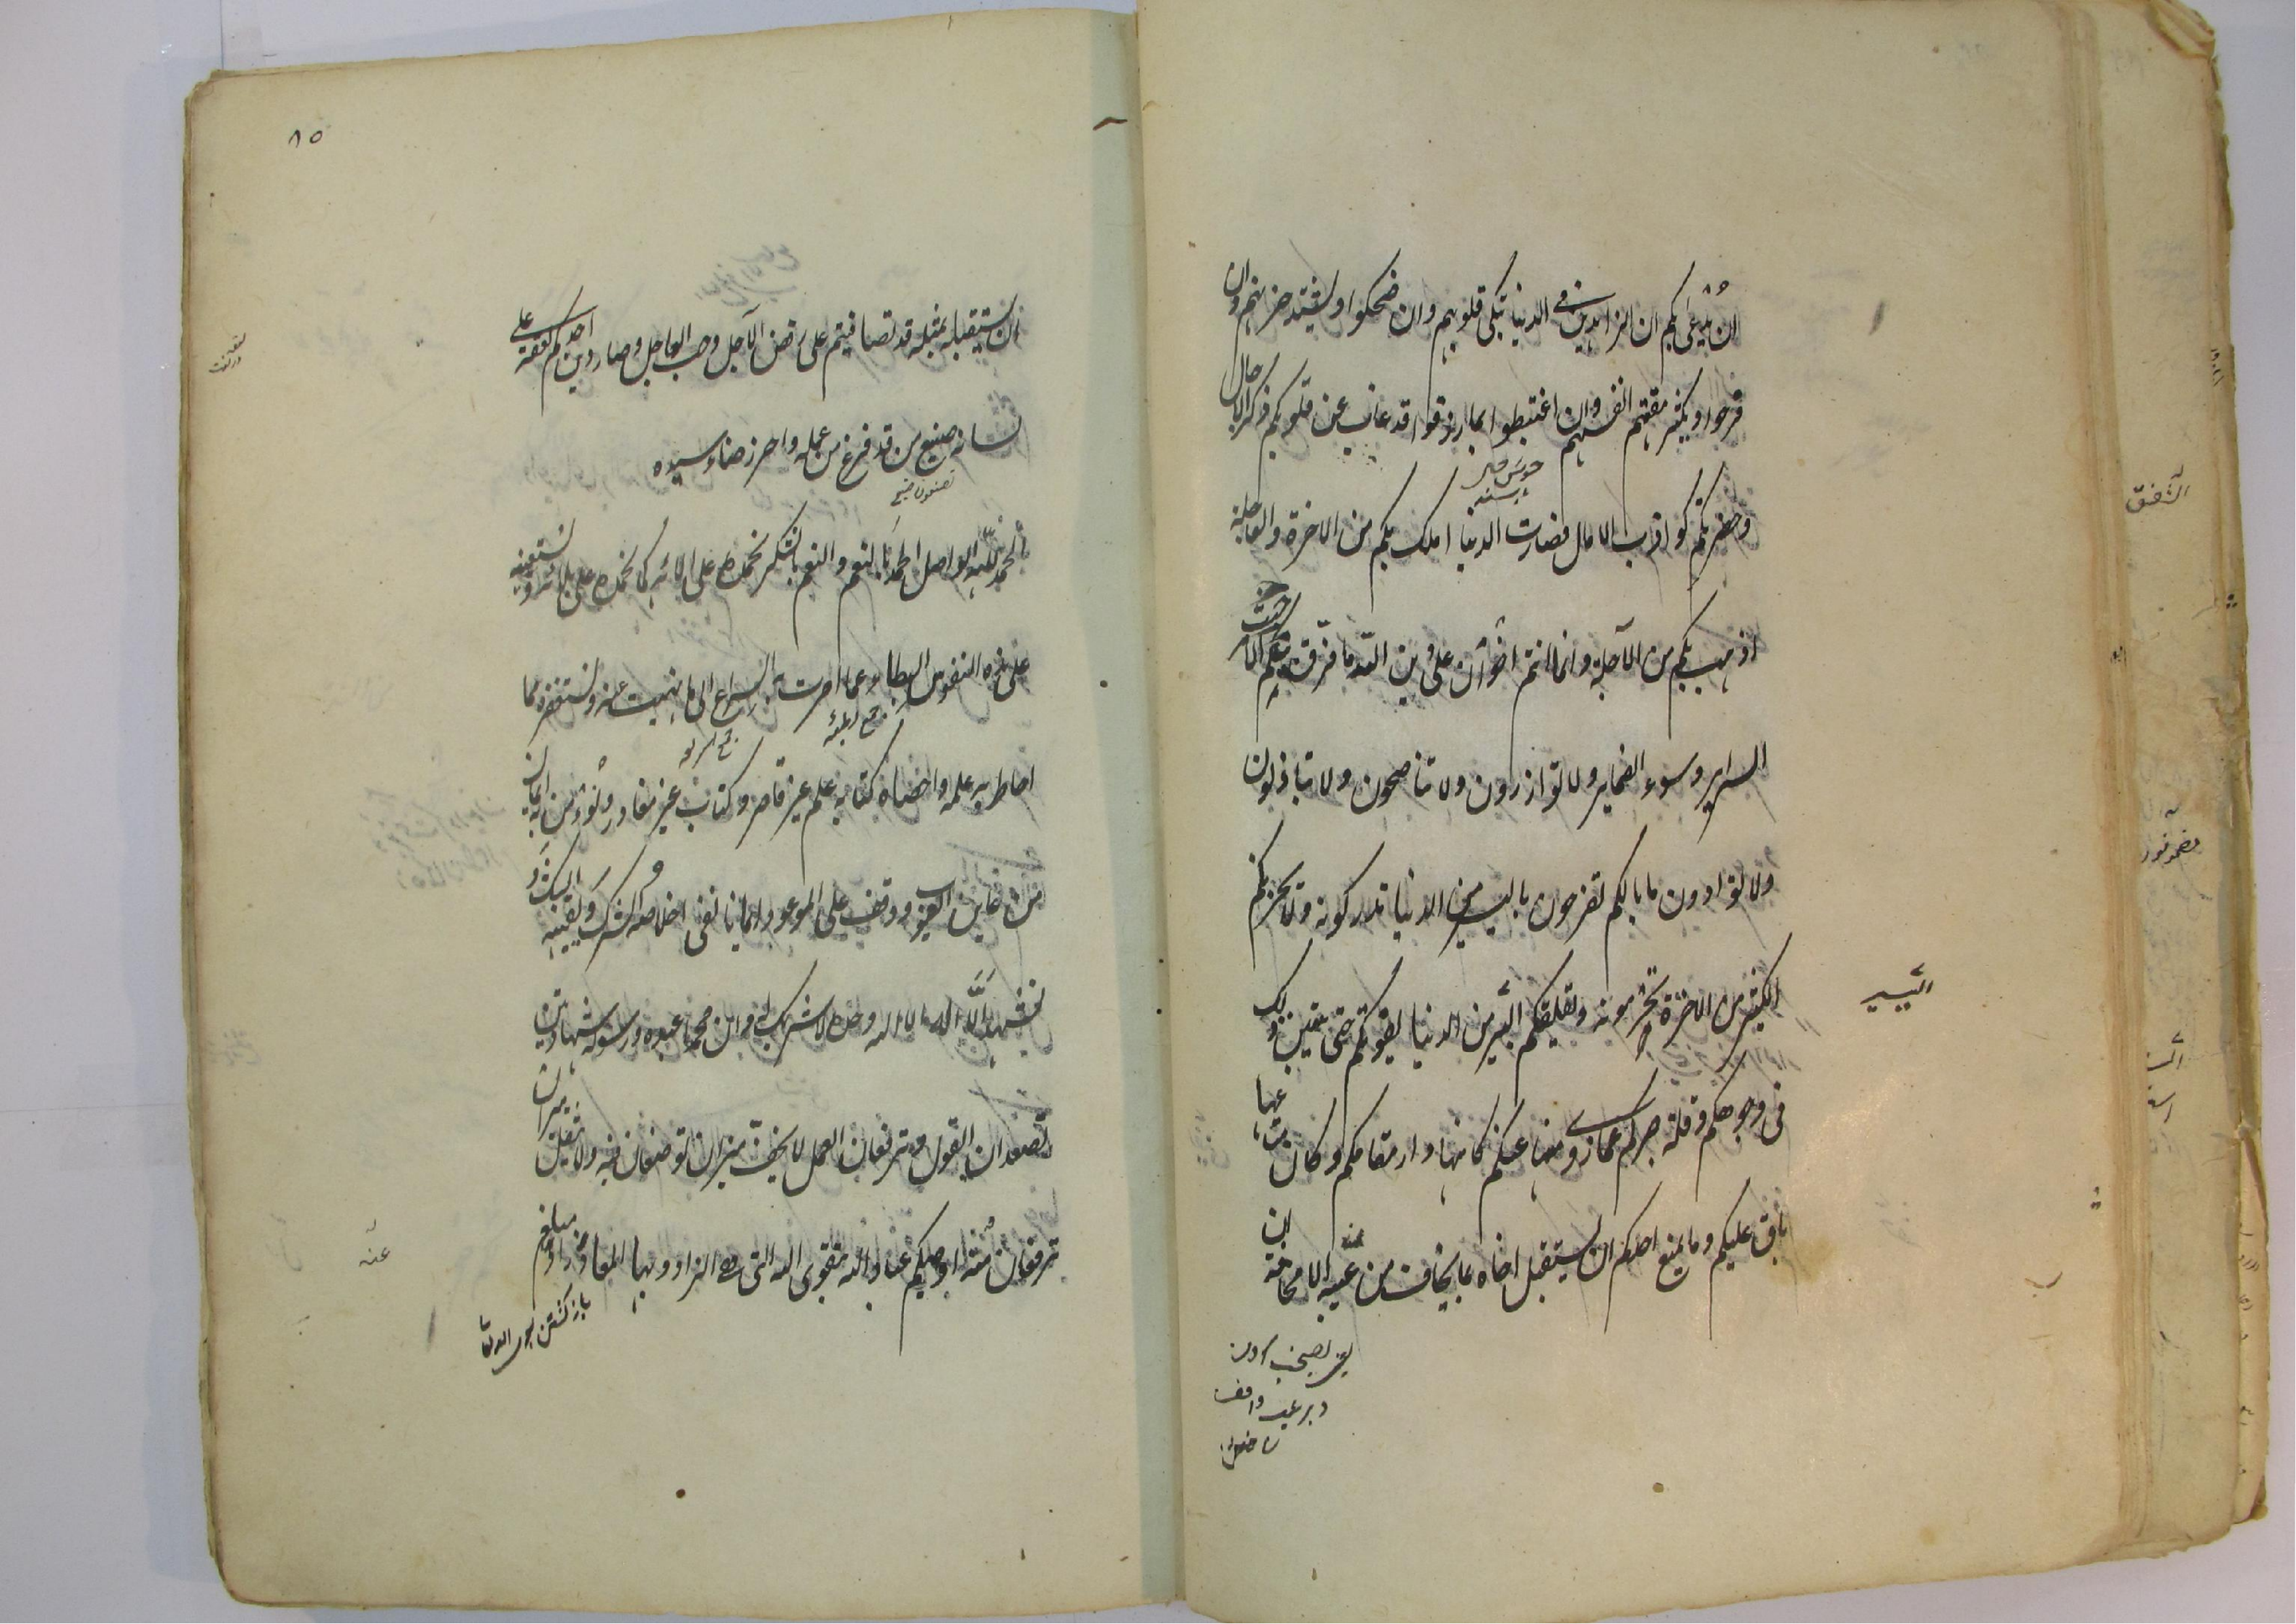 ان يدعى بكم ان الزاهدين في الدنيا تبكى قلوبهم وان ضحكوا ويشتد حزنهم وان
فرحوا ويكثر مقتهم انفسهم وان اغتبطوا بما رزقوا قد غاب عن قلوبكم ذكر الآجال
وحضرتكم كواذب الامال فصارت الدنيا املك بكم من الاخرة والعاجلة
اذهب بكم من الآجلة وانما انتم اخوان على دين الله ما فرق بينكم الا خبث
السراير وسوء الضماير ولا توازرون ولا تناصحون ولا تباذلون
ولا توادون ما بالكم تفرحون باليسير من الدنيا تدركونه ولا يحزنكم
الكثير من الاخرة تحرمونه ويقلقكم اليسير من الدنيا يفوتكم حتى يتبين ذلك
اليسير
في وجوهكم وقلة صبركم عما زوى منها عنكم كانها دار مقامكم وكان متاعها
باق عليكم وما يمنع احدكم ان يستقبل اخاه بما يخاف من عيبه الا مخافة ان
٨٥
ان يستقبله بمثله قد تصافيتم على رفض الآجل وحب العاجل وصار دين احدكم لعقة على
لسانه صنيع من قد فرغ من عمله واحرز رضاء سيده
الحمد لله الواصل الحمد بالنعم والنعم بالشكر نحمده على الائه كما نحمده على بلائه ونستعينه
على هذه النفوس البطاء عما امرت به السراع الى ما نهيت عنه ونستغفره مما
احاط به علمه واحصاه كتابه علم غير قاصر وكتاب غير مغادر ونؤمن به ايمان
من عاين الغيوب ووقف على الموعود ايمانا نفى اخلاصه الشرك ويقينه الشك و
نشهد ان لا اله الا الله وحده لا شريك له وان محمدا عبده ورسوله شهادتين
تصعدان القول وترفعان العمل لا يخف ميزان توضعان فيه ولا يثقل ميزان
ترفعان منه اوصيكم عباد الله بتقوى الله التي هي الزاد وبها المعاذ زاد مبلغ
عنه